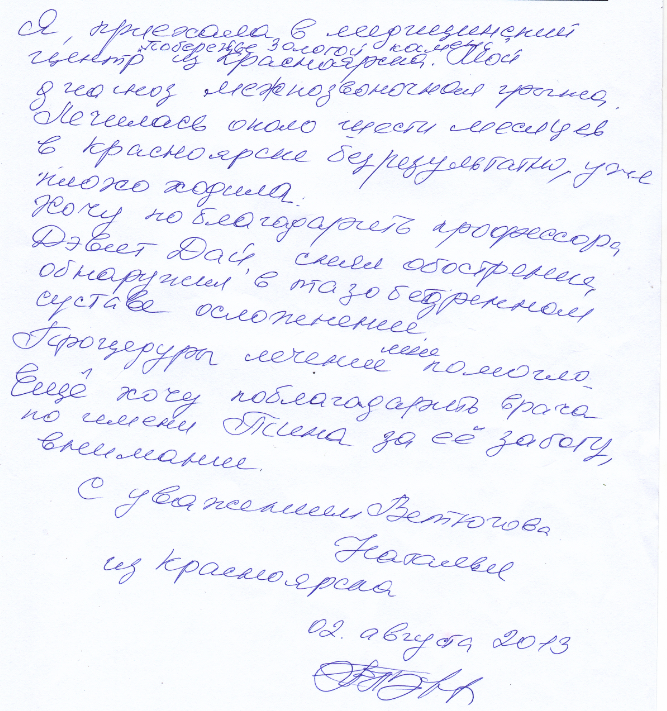 Я, приехала в медицинский
побережье Золотой камень
центр из Красноярска. Мой
диагноз межпозвоночная грыжа.
Лечилась около шести месяцев
в Красноярске безрезультатно, уже
плохо ходила.
Хочу поблагодарить профессора
Дэвит Дай, снял обострение,
обнаружил в тазобедренном
суставе осложнение
Процедуры лечении мне помогло.
Ещё хочу поблагодарить врача
по имени Тина за её заботу,
внимании.
С уважением Ветюгова
Наталья
из Красноярска
02. августа 2013